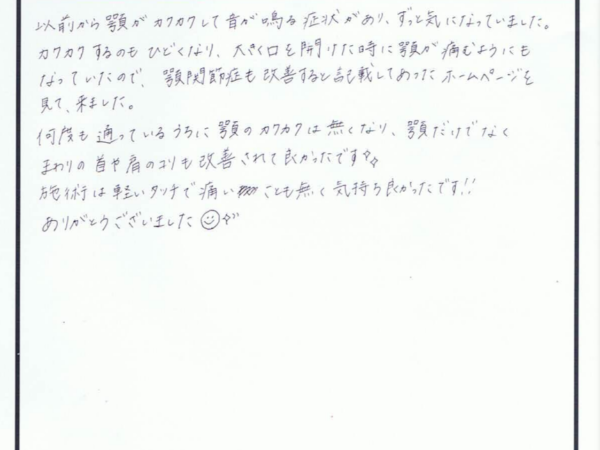 以前から顎がカクカクして音が鳴る症状があり、ずっと気になっていました。
カクカクするのもひどくなり、大きく口を開けた時に顎が痛むようにも
なっていたので、顎関節症も改善すると記載してあったホームページを
見て、来ました。
何度も通っているうちに顎のカクカクは無くなり、顎だけでなく
まわりの首や肩のコリも改善されて良かったです
施術は軽いタッチで痛いことも無く気持ち良かったです!!
ありがとうございました